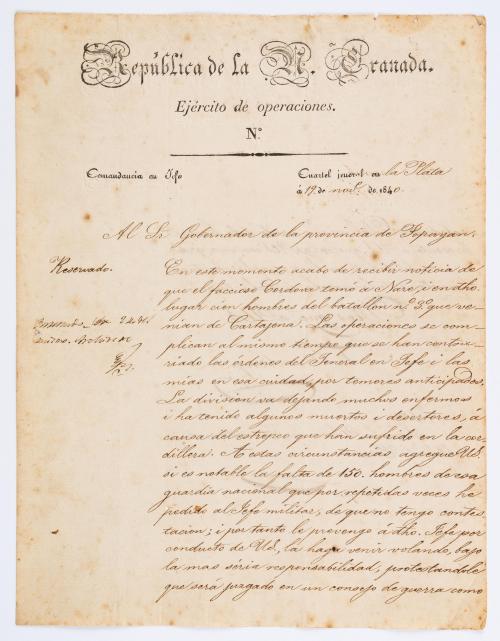 República de la N. Granada.
Ejército de operaciones.
N.º
Comandancia en Jefe
Cuartel jeneral en la Plata
á 19 de nov.e de 1840.
Al Sr Gobernador de la provincia de Popayan.
Reservado.
En este momento acabo de recibir noticia de
que el faccioso Cordova tomó á Nare i en dho.
lugar cien hombres del batallon n.º 3.º que ve-
nian de Cartajena. Las operaciones se com-
plican al mismo tiempo que se han contra-
riado las órdenes del Jeneral en Jefe i las
mias en esa cuidad, por temores anticipados.
La division va dejando muchos enfermos
i ha tenido algunos muertos i desertores, á
causa del estropeo que han sufrido en la cor-
dillera. A estas circunstancias agregue US.
si es notable la falta de 150. hombres de esa
guardia nacional que por repetidas veces he
pedido al Jefe militar, de que no tengo contes-
tacion; i por tanto le prevengo á dho. Jefe por
conducto de US, la haga venir volando, bajo
la mas séria responsabilidad, protestandole
que será juzgado en un consejo de guerra como